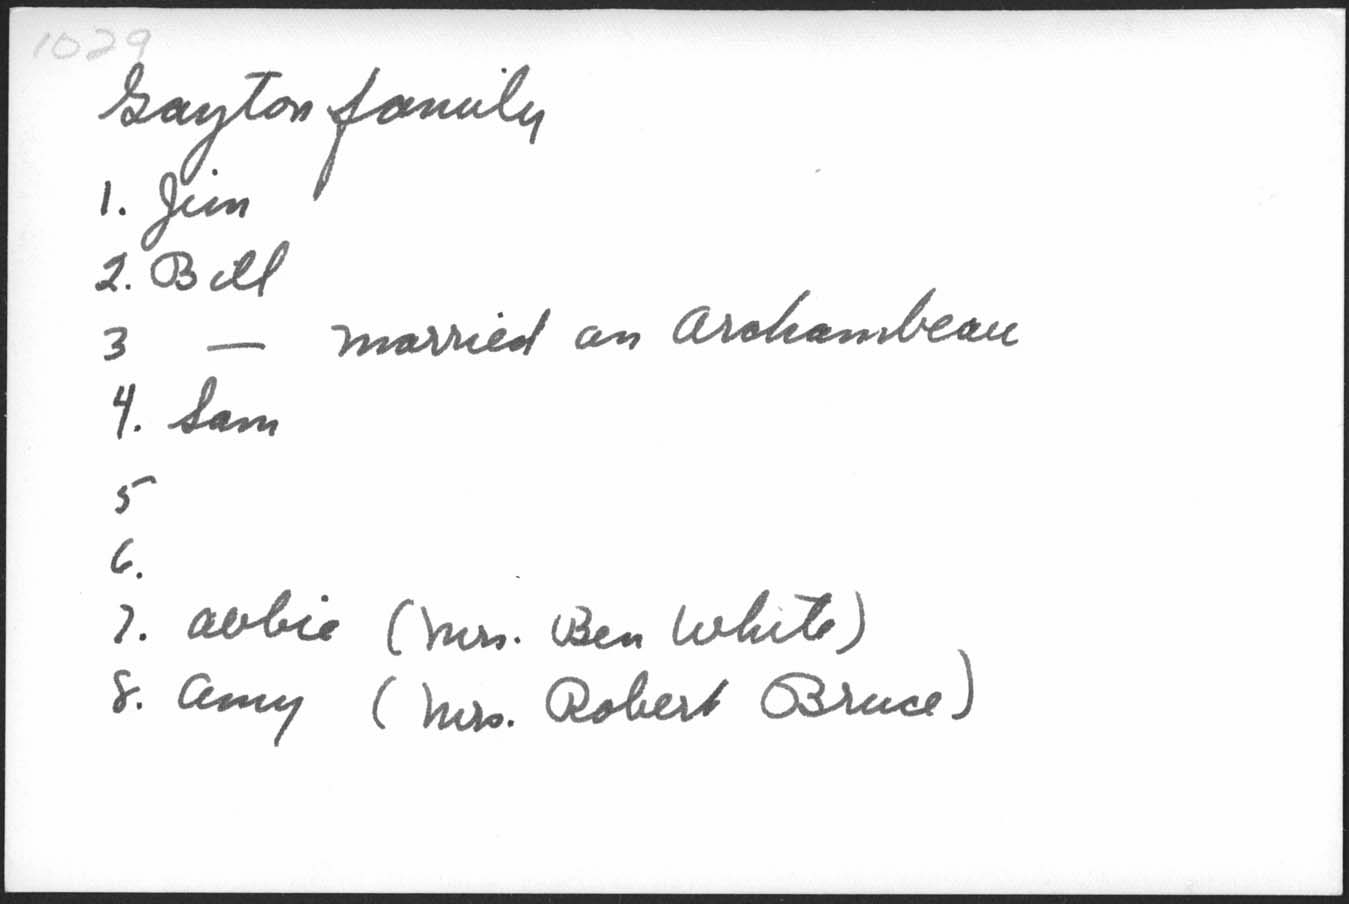 1029
Gayton family
1. Jim
2. Bill
3 — married an Archambeau
4. Sam
5
6.
7. Abbie (Mrs. Ben White)
8. Amy (Mrs. Robert Bruce)